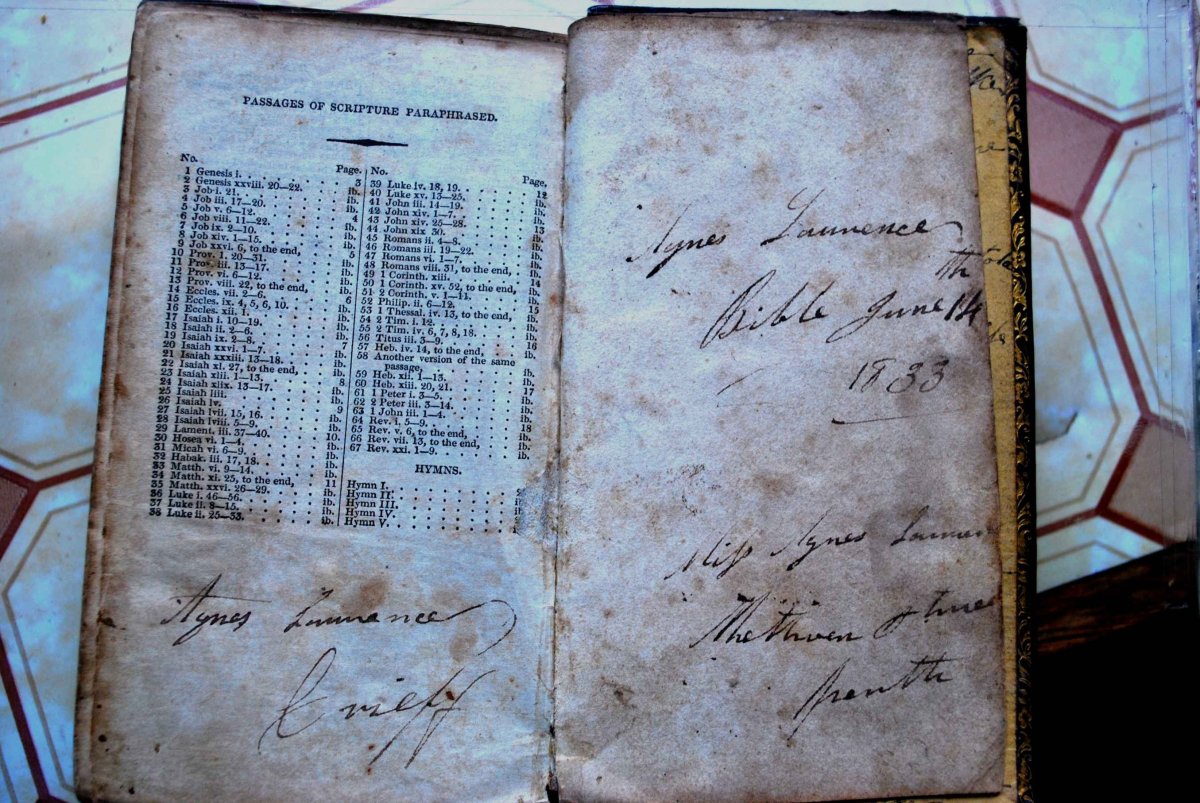 PASSAGES OF SCRIPTURE PARAPHRASED.
No. Page.
1 Genesis i. 3
2 Genesis xxviii. 20—22. ib.
3 Job i. 21. ib.
4 Job iii. 17—20. ib.
5 Job v. 6—12. 4
6 Job viii. 11—22. ib.
7 Job ix. 2—10. ib.
8 Job xiv. 1—15. ib.
9 Job xxvi. 6, to the end, 5
10 Prov. 1. 20—31. ib.
11 Prov. iii. 13—17. ib.
12 Prov. vi. 6—12. ib.
13 Prov. viii. 22, to the end, ib.
14 Eccles. vii. 2—6. 6
15 Eccles. ix. 4, 5, 6, 10. ib.
16 Eccles. xii. 1. ib.
17 Isaiah i. 10—19. ib.
18 Isaiah ii. 2—6. ib.
19 Isaiah ix. 2—8. 7
20 Isaiah xxvi. 1—7. ib.
21 Isaiah xxxiii. 13—18. ib.
22 Isaiah xl. 27, to the end, ib.
23 Isaiah xlii. 1—13. 8
24 Isaiah xlix. 13—17. ib.
25 Isaiah liii. ib.
26 Isaiah lv. 9
27 Isaiah lvii. 15, 16. ib.
28 Isaiah lviii. 5—9. ib.
29 Lament. iii. 37—40. 10
30 Hosea vi. 1—4. ib.
31 Micah vi. 6—9. ib.
32 Habak. iii. 17, 18. ib.
33 Matth. vi. 9—14. ib.
34 Matth. xi. 25, to the end, 11
35 Matth. xxvi. 26—29. ib.
36 Luke i. 46—56. ib.
37 Luke ii. 8—15. ib.
38 Luke ii. 25—33. ib.
No. Page.
39 Luke iv. 18, 19. 12
40 Luke xv. 13—25. ib.
41 John iii. 14—19. ib.
42 John xiv. 1—7. ib.
43 John xiv. 25—28. 13
44 John xix 30. ib.
45 Romans ii. 4—8. ib.
46 Romans iii. 19—22. ib.
47 Romans vi. 1—7. ib.
48 Romans viii. 31, to the end, 14
49 1 Corinth. xiii. ib.
50 1 Corinth. xv. 52, to the end, ib.
51 2 Corinth. v. 1—11. 15
52 Philip. ii. 6—12. ib.
53 1 Thessal. iv. 13, to the end, ib.
54 2 Tim. i. 12. ib.
55 2 Tim. iv. 6, 7, 8, 18. 16
56 Titus iii. 3—9. ib.
57 Heb. iv. 14, to the end,
58 Another version of the same
passage, ib.
59 Heb. xii. 1—13. ib.
60 Heb. xiii. 20, 21. 17
61 1 Peter i. 3—5. ib.
62 2 Peter iii. 3—14. ib.
63 1 John iii. 1—4. 18
64 Rev. i. 5—9. ib.
65 Rev. v. 6, to the end, ib.
66 Rev. vii. 13, to the end, ib.
67 Rev. xxi. 1—9. ib.
HYMNS.
Hymn I.
Hymn II.
Hymn III.
Hymn IV.
Hymn V.
Agnes Lawrence
Crieff
Agnes Lawrence
Bible June 14th
1833
Miss Agnes
Methven
Perth